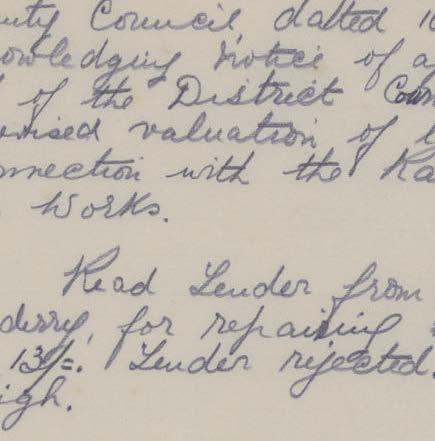 unty Council dalted 10
owledging notice of a
of the District Coun
evised valuation of l
nnection with the Ra
Works.
Read Tender from
derry, for repairing
13/=. Tender rejected.
igh.